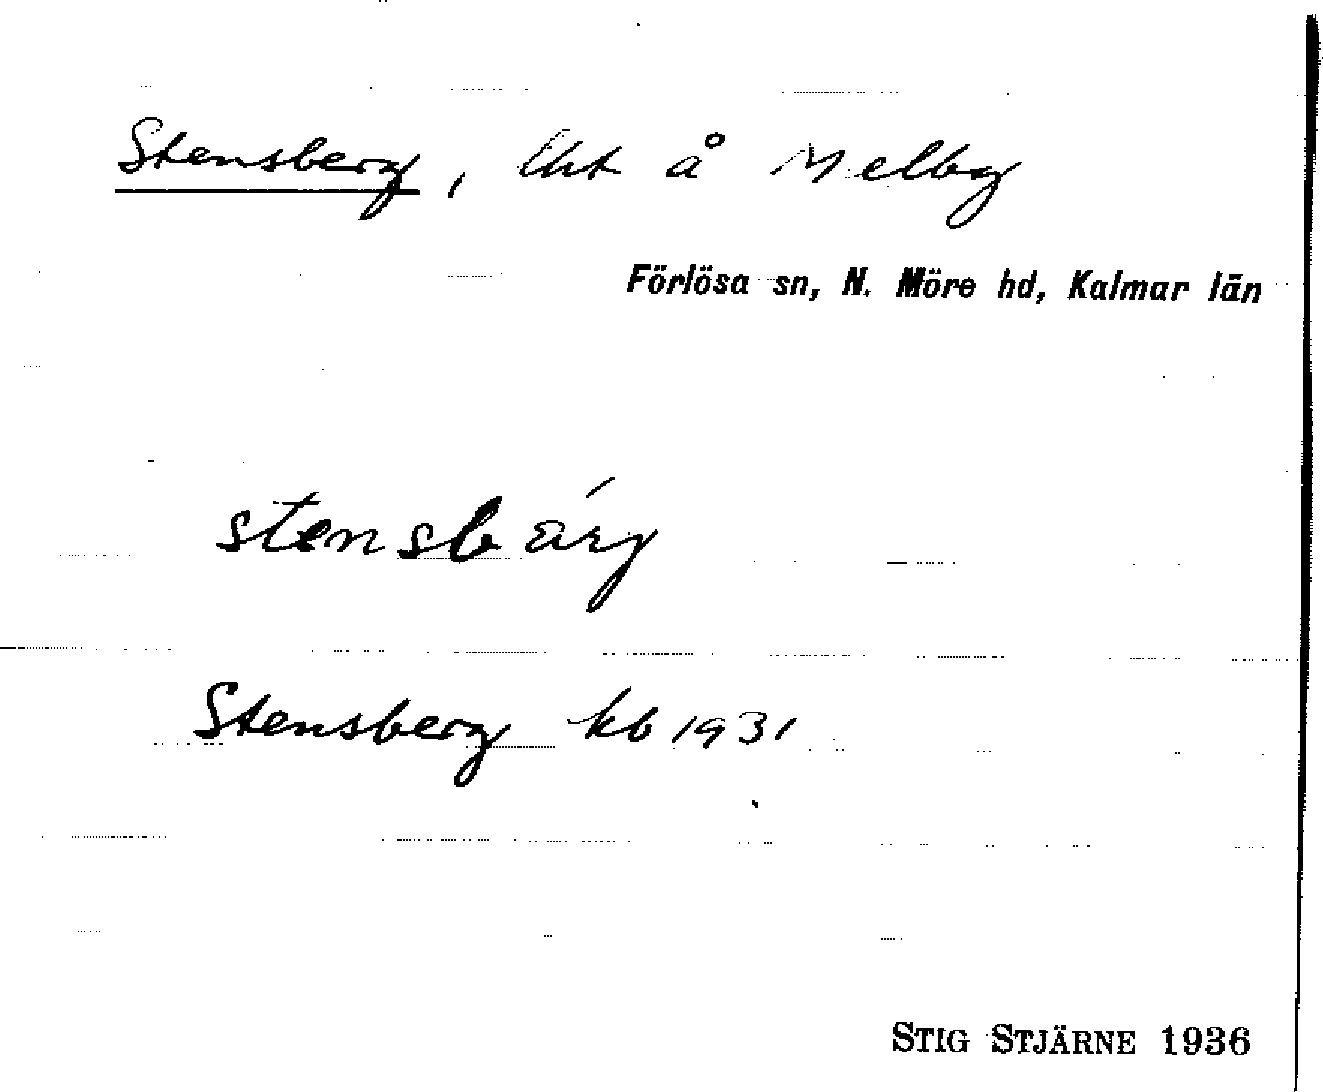 Stensberg, lht å Melby
Förlösa sn, N. Möre hd, Kalmar län
stensbärg
Stensberg kb 1931
STIG STJÄRNE 1936